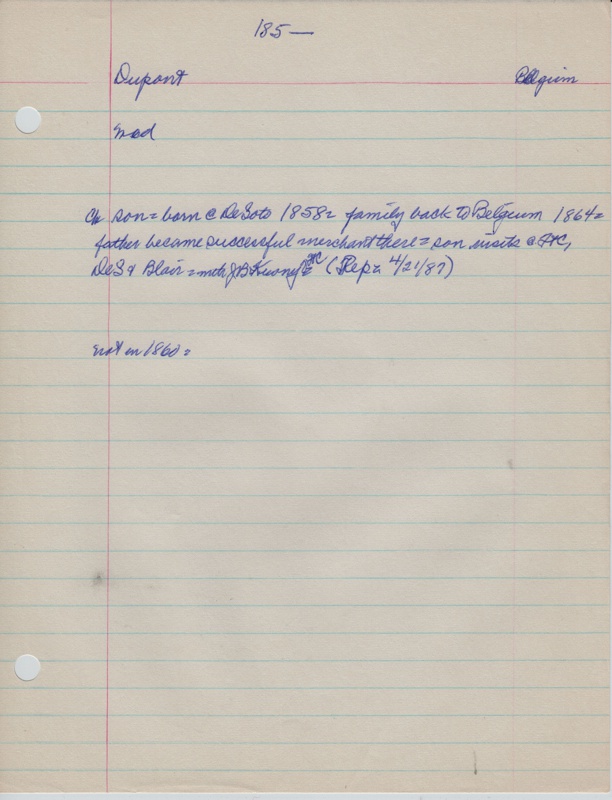 185—
Dupont Belgium
nod
Ch son = born @ DeSoto 1858 = family back to Belgium 1864 =
father became successful merchant there = son visits @ FtC,
DeS & Blair = mth J B Kuony @ FtC (Rep = 4/21/87)
not in 1860 =